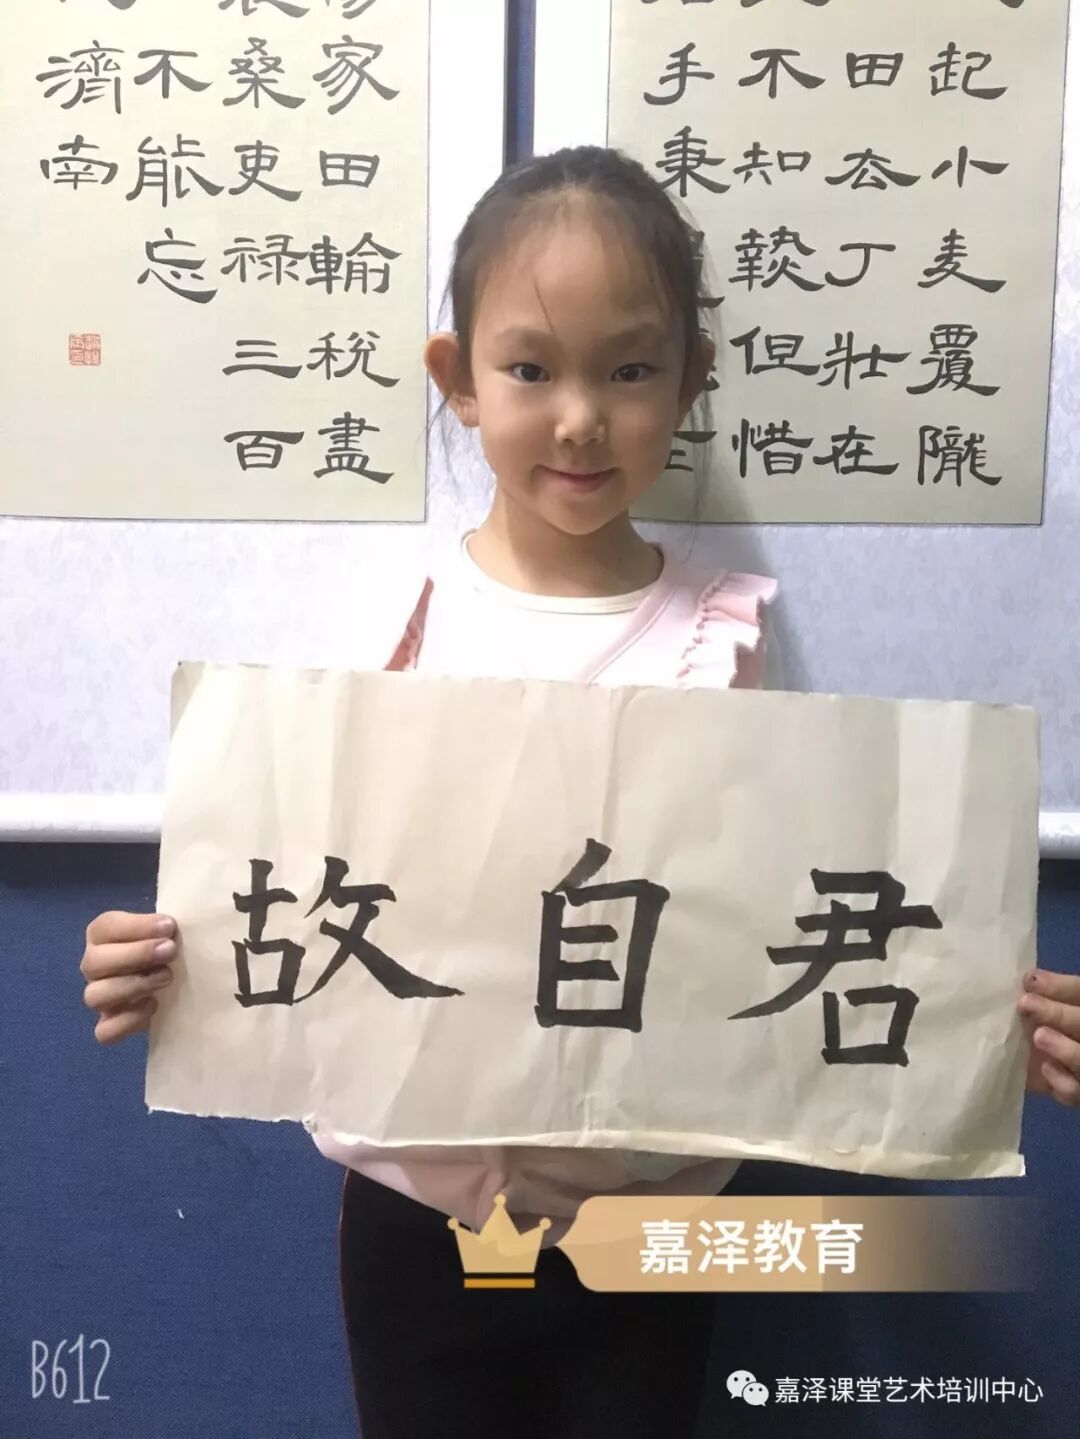 起小麦覆隴
田去丁壯在
不知熱但惜
手秉
家田輸税盡
桑吏禄三百
不能忘
濟南
君自故
嘉泽教育
B612
嘉泽课堂艺术培训中心